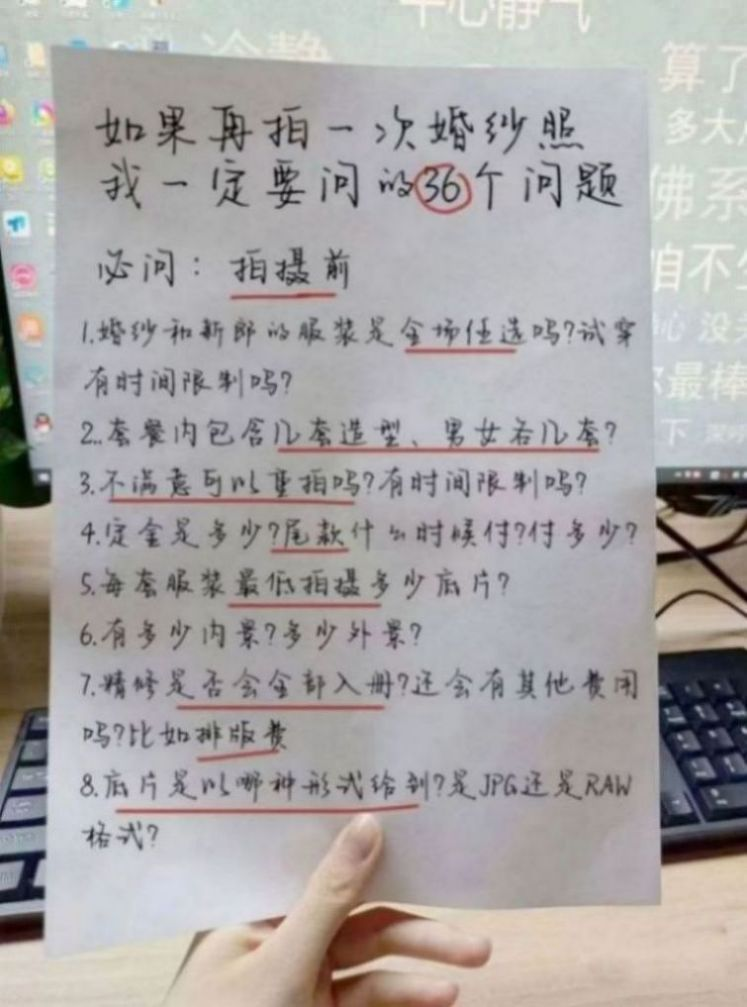 平心静气
冷静
算了
多大
佛系
咱不
没
最棒
下
如果再拍一次婚纱照
我一定要问的36个问题
必问：拍摄前
1.婚纱和新郎的服装是全场任选吗?试穿
有时间限制吗?
2..套餐内包含几套造型、男女各几套?
3.不满意可以重拍吗?有时间限制吗?
4.定金是多少?尾款什么时候付?付多少?
5.每套服装最低拍摄多少底片?
6.有多少内景?多少外景?
7.精修是否会全部入册?还会有其他费用
吗?比如排版费
8.底片是以哪种形式给到?是JPG还是RAW
格式?